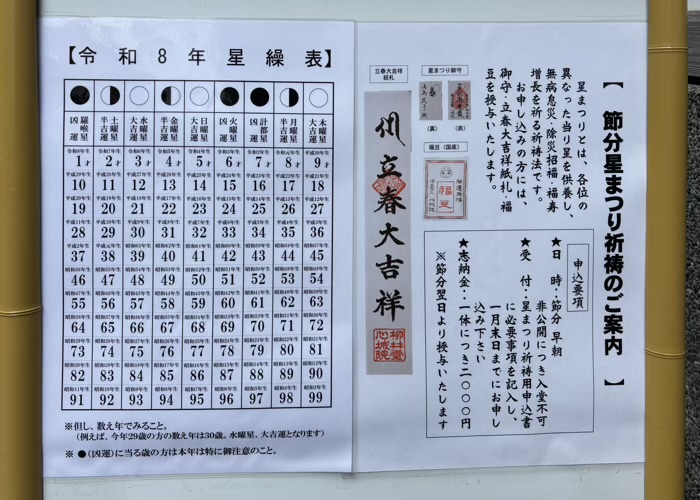 【令和8年星繰表】
羅喉星 凶運
土曜星 半吉運
水曜星 大吉運
金曜星 半吉運
日曜星 大吉運
火曜星 凶運
計都星 凶運
月曜星 半吉運
木曜星 大吉運
1才 2才 3才 4才 5才 6才 7才 8才 9才
10 11 12 13 14 15 16 17 18
19 20 21 22 23 24 25 26 27
28 29 30 31 32 33 34 35 36
37 38 39 40 41 42 43 44 45
46 47 48 49 50 51 52 53 54
55 56 57 58 59 60 61 62 63
64 65 66 67 68 69 70 71 72
73 74 75 76 77 78 79 80 81
82 83 84 85 86 87 88 89 90
91 92 93 94 95 96 97 98 99
※但し、数え年でみること。
(例えば、今年29歳の方の数え年は30歳。水曜星、大吉運となります)
※ ●(凶運)に当る歳の方は本年は特に御注意のこと。
【 節分星まつり祈祷のご案内 】
星まつりとは、各位の
異なった当り星を供養し、
無病息災・除災招福・福寿
増長を祈る祈祷法です。
お申し込みの方には、
御守・立春大吉祥紙札・福
豆を授与いたします。
星まつり御守
(裏)
(表)
福豆(国産)
福豆
立春大吉祥
紙札
立春大吉祥
申込要項
★日 時:節分 早朝
非公開につき入堂不可
★受 付:星まつり祈祷用申込書
に必要事項を記入し、
一月末日までにお申し
込み下さい
★志納金:一体につき二〇〇〇円
※節分翌日より授与いたします